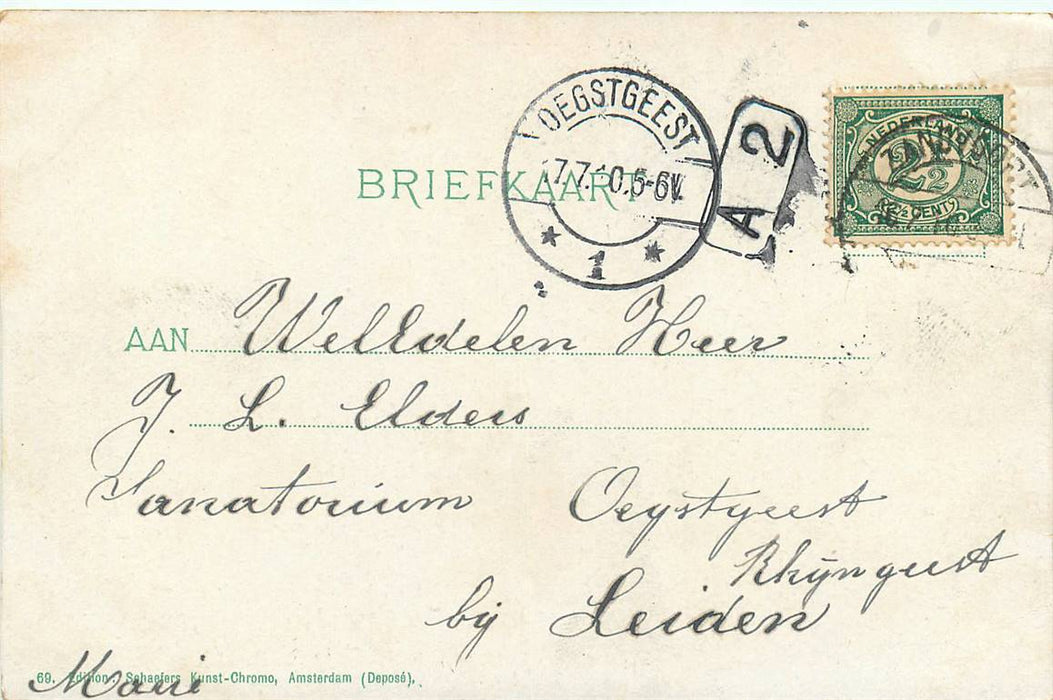 OEGSTGEEST
7.7.10.5-6V.
1
A 2
NEDERLAND
2½
2½ CENT
ZANDVOORT
BRIEFKAART
AAN WelEdelen Heer
J. L. Elders
Sanatorium Oegstgeest
Rhijngeest
bij Leiden
Marie
69. Edition: Schaefers Kunst-Chromo, Amsterdam (Deposé).